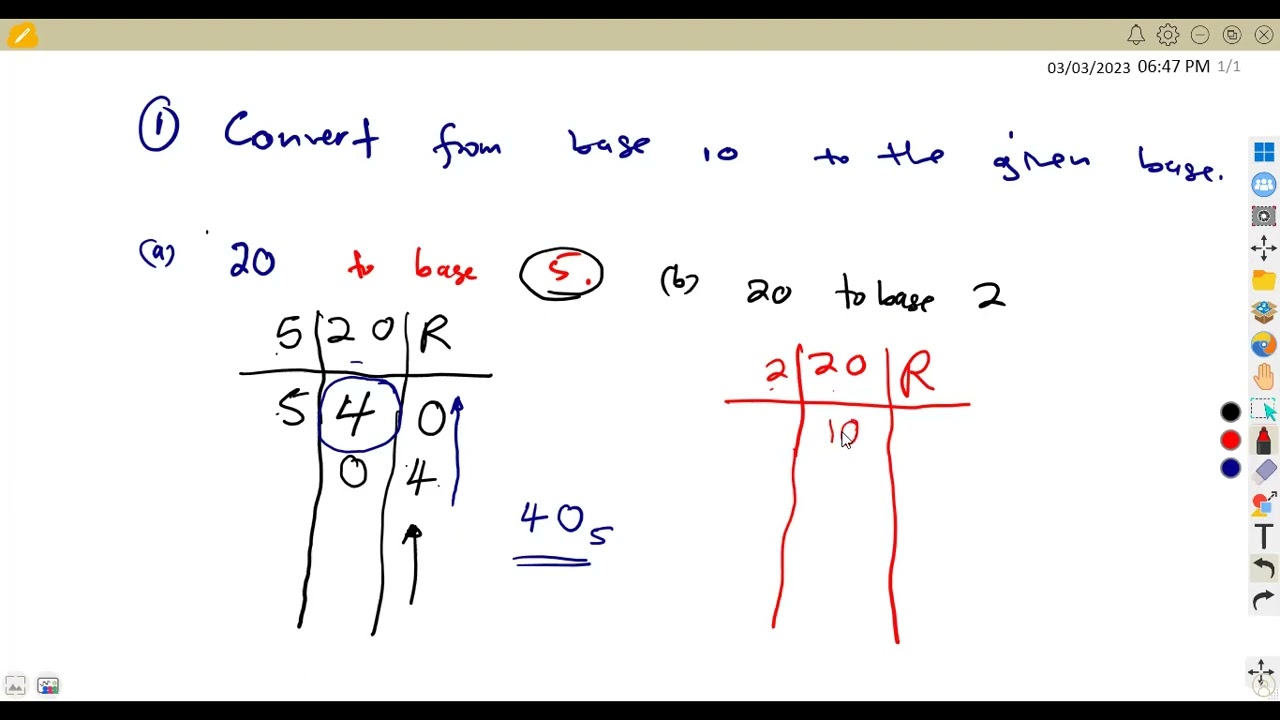 03/03/2023 06:47 PM 1/1
① Convert from base 10 to the given base.
(a) 20 to base 5.
5 20 R
5 4 0
0 4
40₅
(b) 20 to base 2
2 20 R
10
T